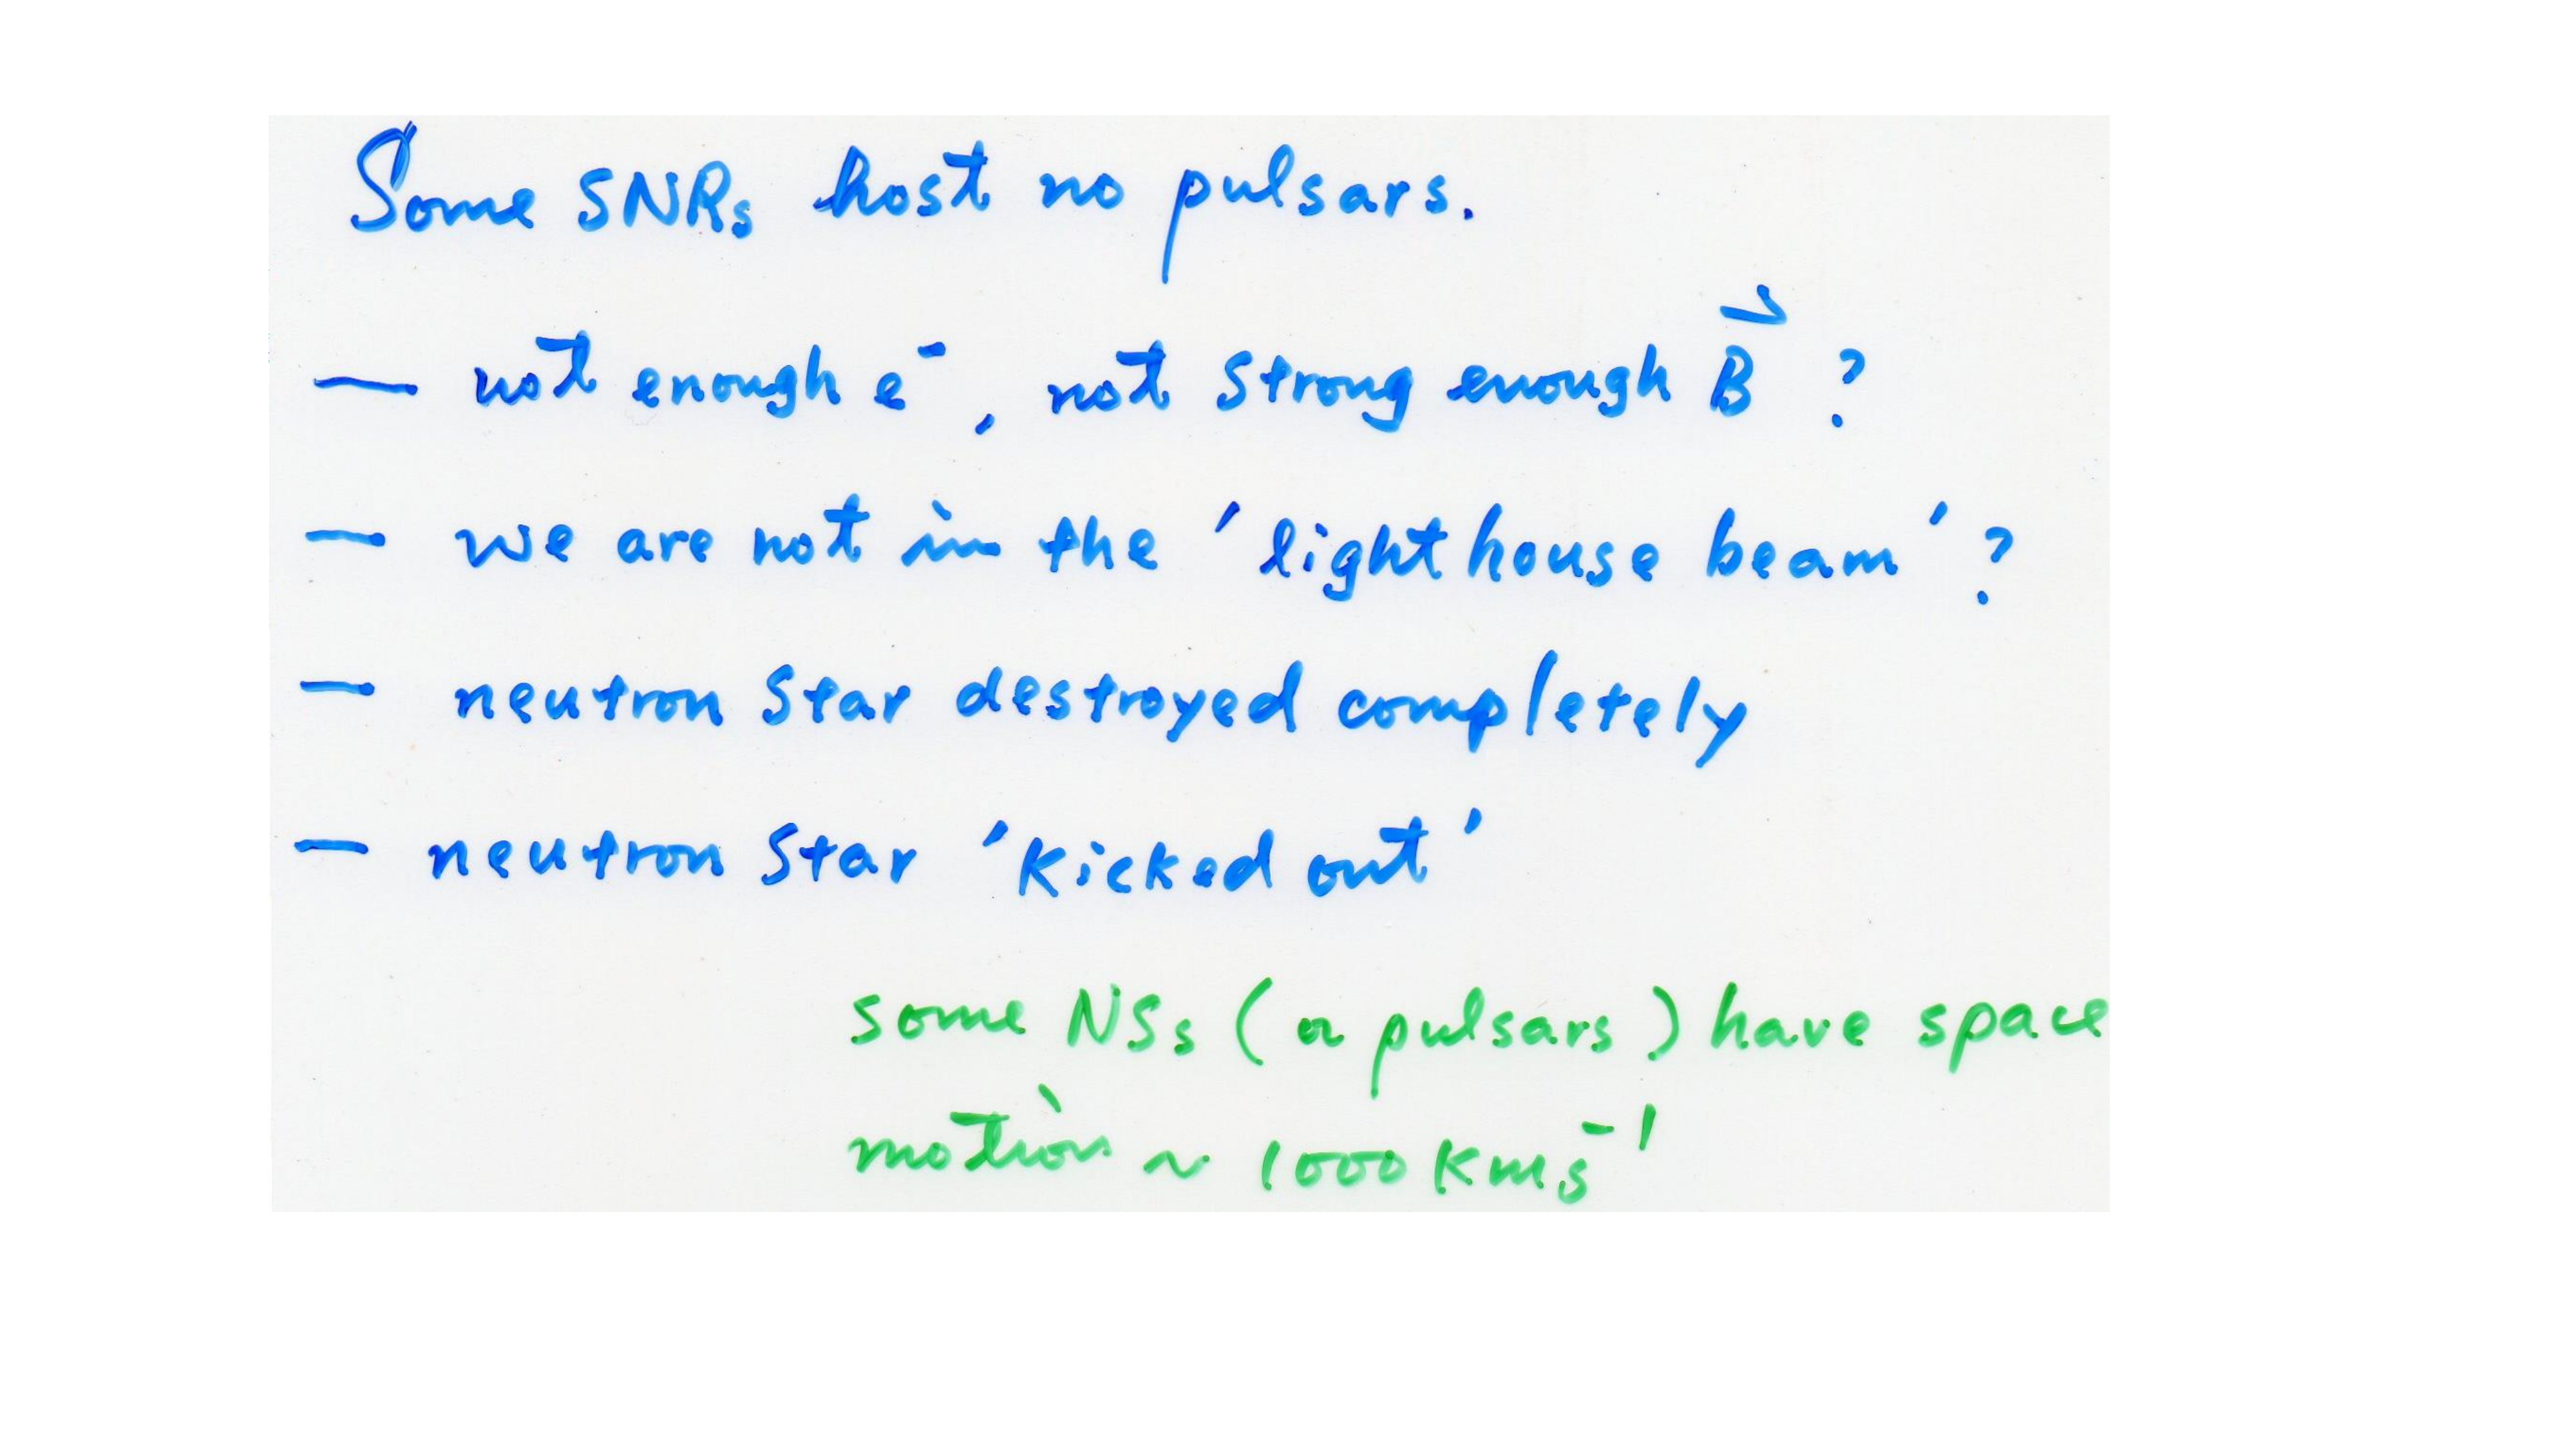 Some SNRs host no pulsars.
— not enough e⁻, not strong enough B⃗ ?
— we are not in the 'lighthouse beam' ?
— neutron star destroyed completely
— neutron star 'kicked out'
some NSs (or pulsars) have space
motion ~ 1000 km s⁻¹